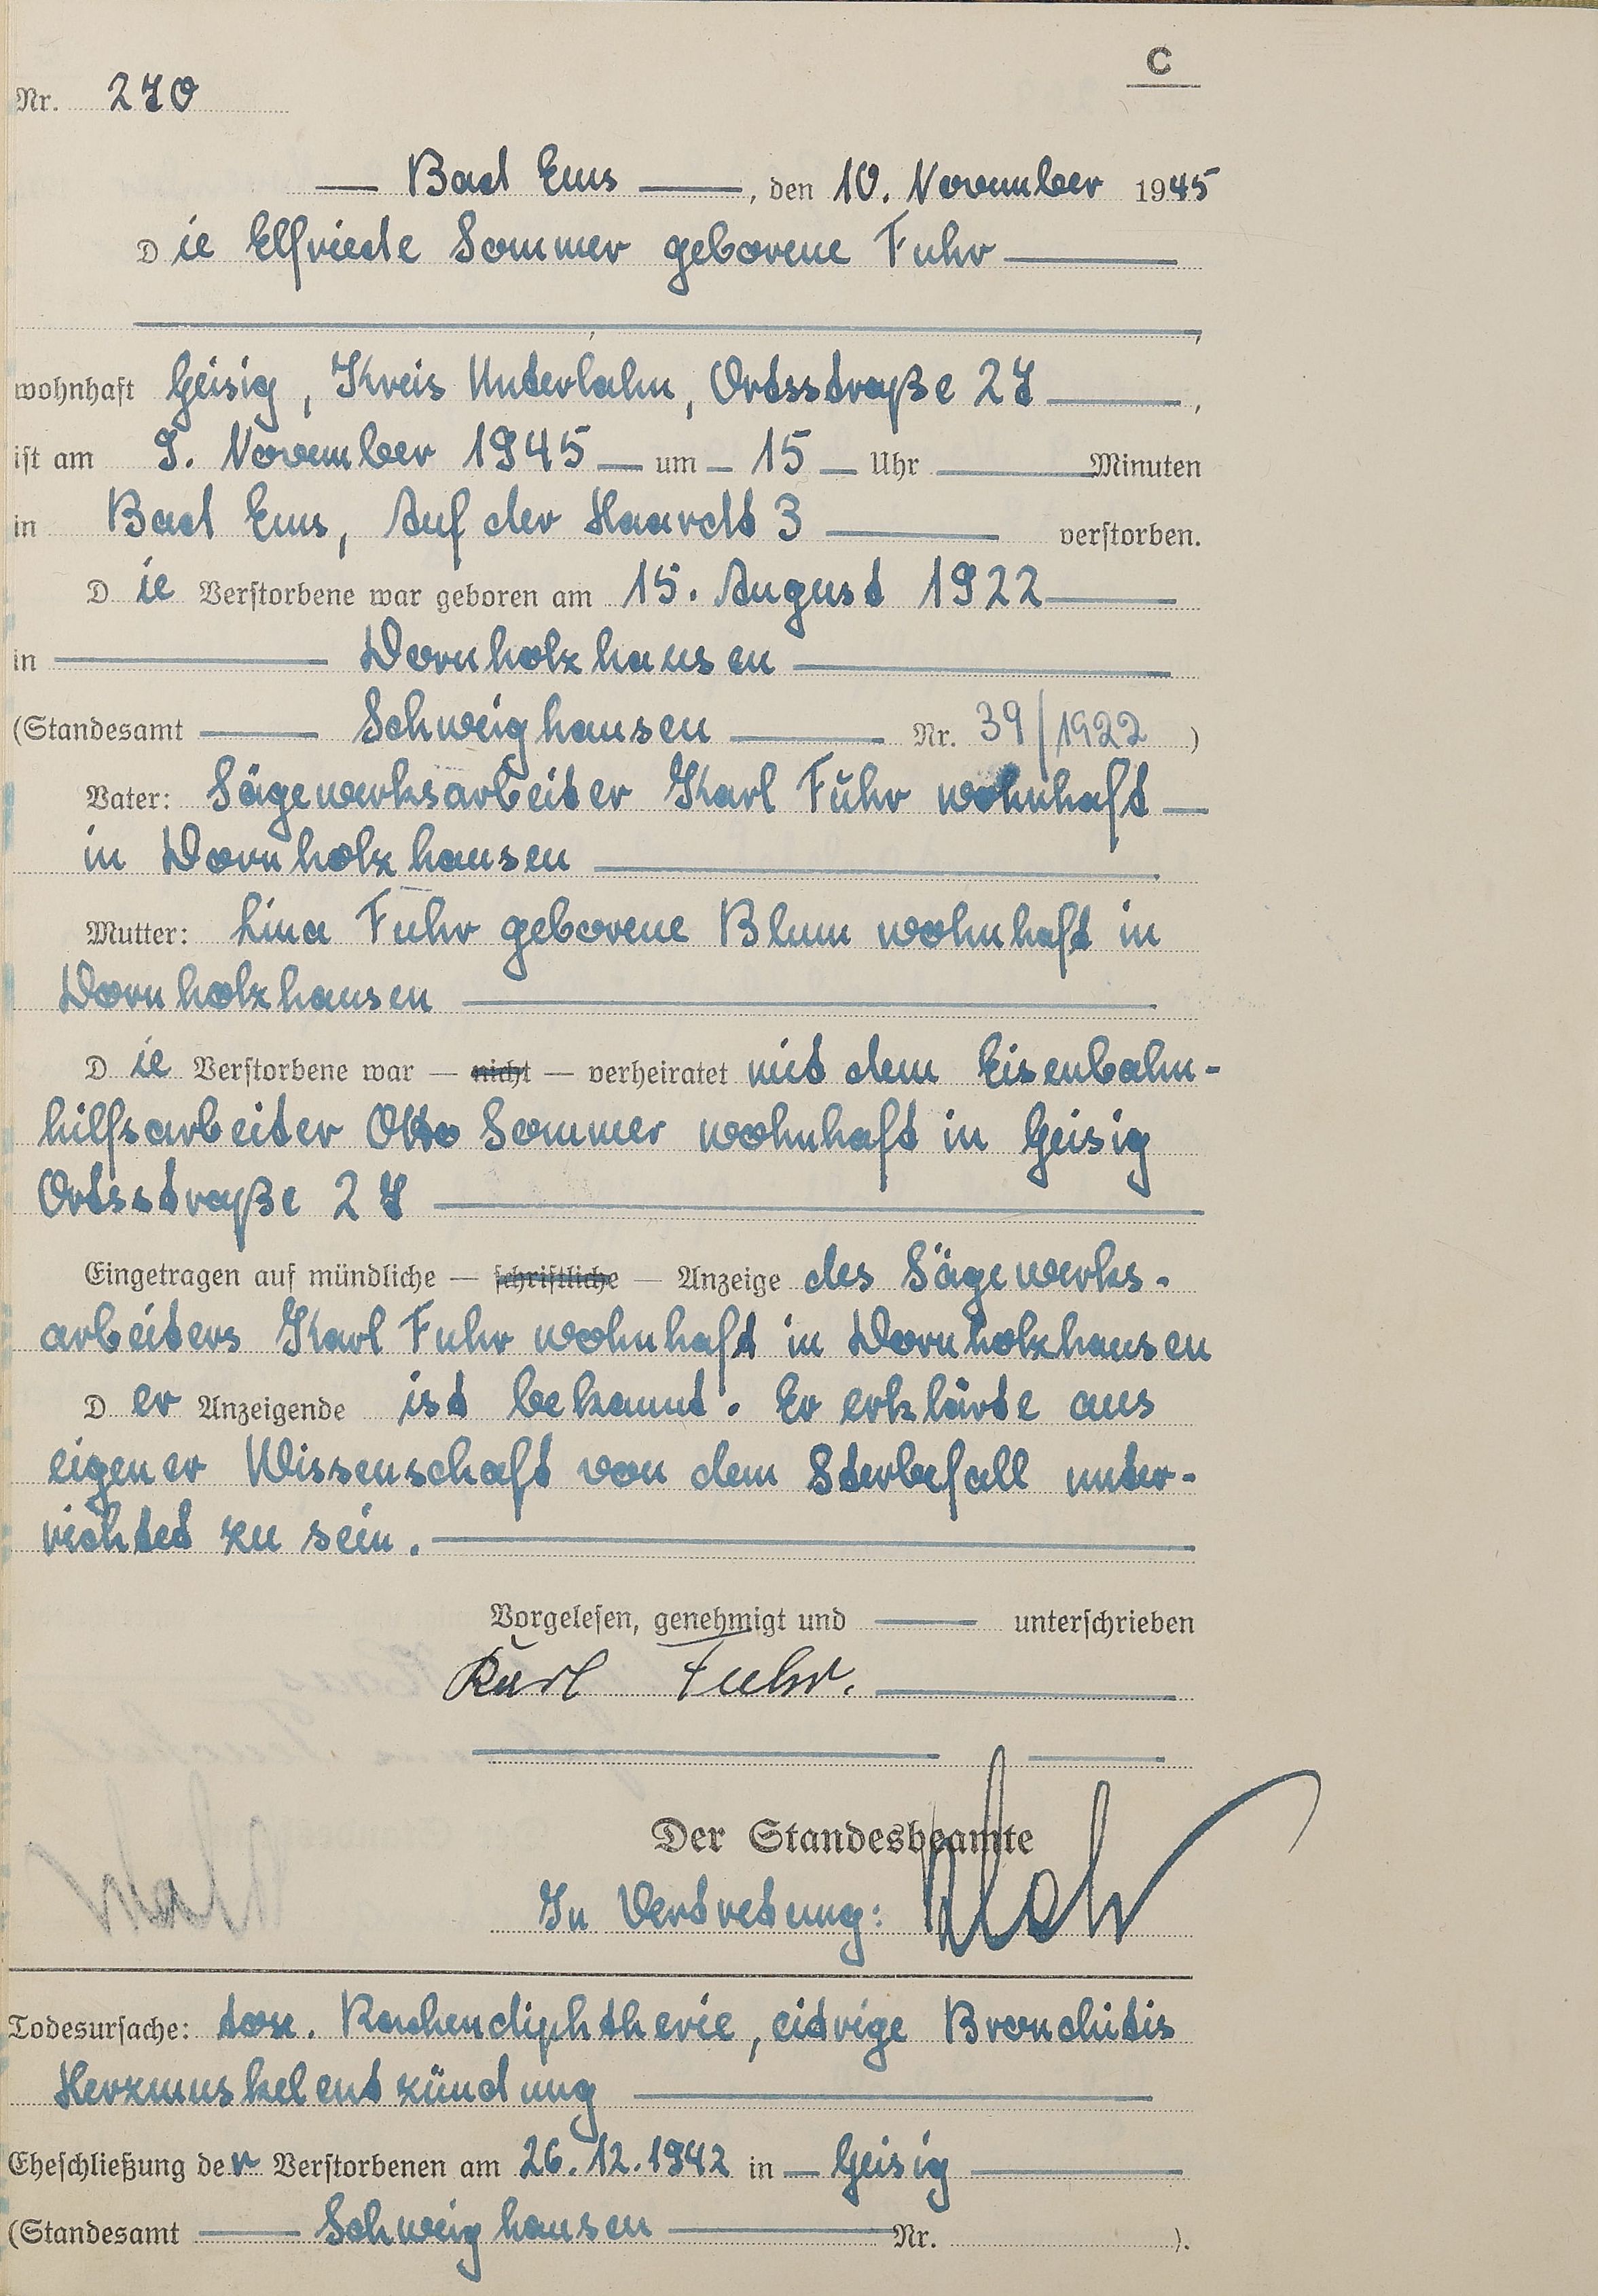 C
Nr. 270
Bad Ems, den 10. November 1945
Die Elfriede Sommer geborene Fuhr
,
wohnhaft Geisig, Kreis Unterlahn, Ortsstraße 27,
ist am 9. November 1945 um 15 Uhr Minuten
in Bad Ems, Auf der Haardt 3 verstorben.
Die Verstorbene war geboren am 15. August 1922
in Dornholzhausen
(Standesamt Schweighausen Nr. 39/1922)
Vater: Sägewerksarbeiter Karl Fuhr wohnhaft
in Dornholzhausen
Mutter: Lina Fuhr geborene Blum wohnhaft in
Dornholzhausen
Die Verstorbene war — nicht — verheiratet mit dem Eisenbahn-
hilfsarbeiter Otto Sommer wohnhaft in Geisig
Ortsstraße 27
Eingetragen auf mündliche — schriftliche — Anzeige des Sägewerks-
arbeiters Karl Fuhr wohnhaft in Dornholzhausen
Der Anzeigende ist bekannt. Er erklärte aus
eigener Wissenschaft von dem Sterbefall unter-
richtet zu sein.
Vorgelesen, genehmigt und unterschrieben
Karl Fuhr.
Der Standesbeamte
In Vertretung:
Todesursache: tox. Rachendiphtherie, eitrige Bronchitis
Herzmuskelentzündung
Eheschließung der Verstorbenen am 26.12.1942 in Geisig
(Standesamt Schweighausen Nr. ).